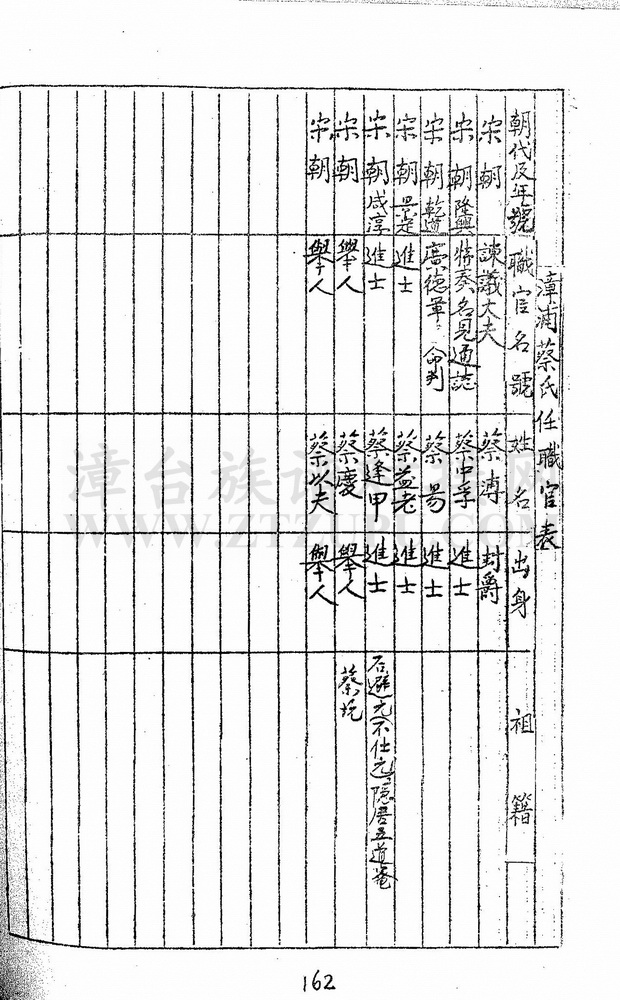 漳浦蔡氏任職官表
朝代及年號 職官名號 姓名 出身 祖籍
宋朝 諫議大夫 蔡漙 封爵
宋朝隆興 特奏名見通誌 蔡中孚 進士
宋朝乾道 廣德軍 僉判 蔡易 進士
宋朝景定 進士 蔡益老 進士
宋朝咸淳 進士 蔡逢甲 進士 后避元不仕元 隱居五道菴
宋朝 舉人 蔡慶 舉人 蔡坑
宋朝 舉人 蔡以夫 舉人
162
漳台族谱对接网
WWW.ZTZUPU.COM